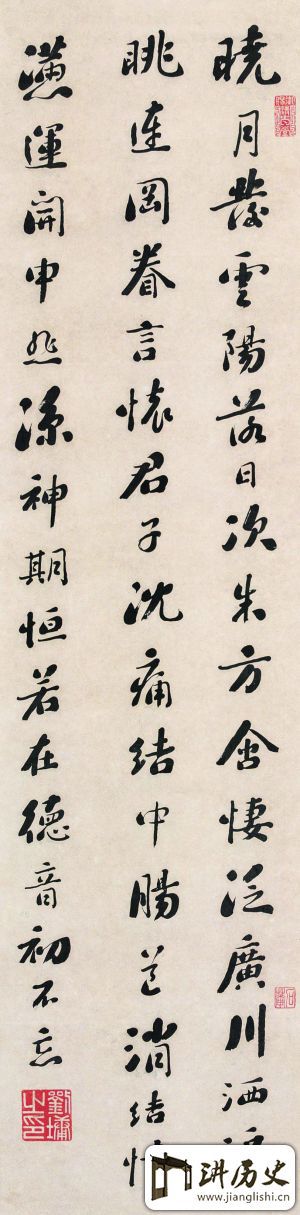 曉月發雲陽落日次朱方含悽泛廣川洒淚
眺連岡眷言懷君子沈痛結中腸道消結憤
懣運開申悲涼神期恒若在德音初不忘
劉墉之印
讲历史
www.jianglishi.cn